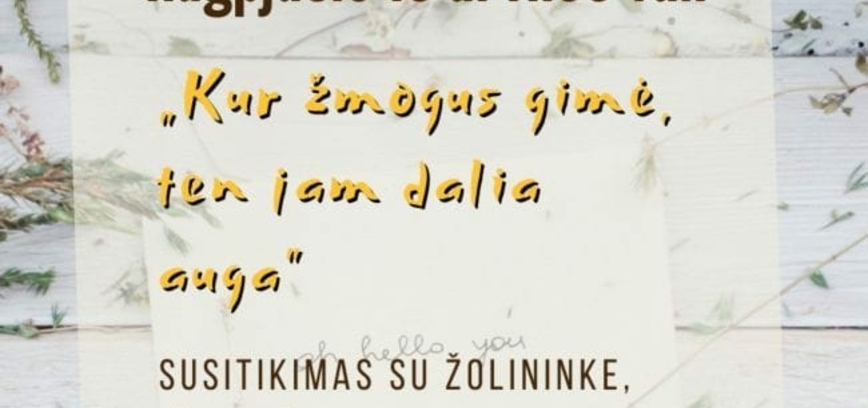 „Kur žmogus gimė,
ten jam dalia
auga"
oh hello you
SUSITIKIMAS SU ŽOLININKE,